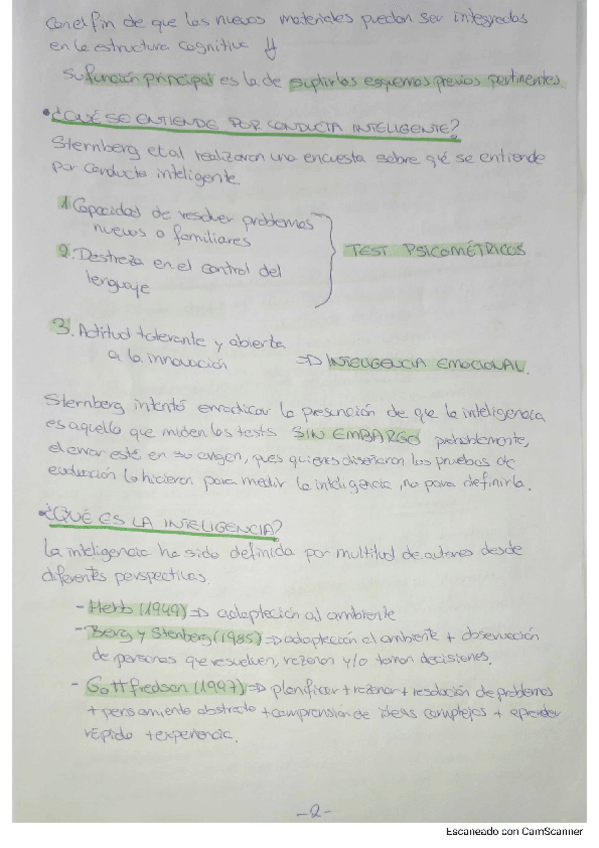 Con el fin de que los nuevos materiales puedan ser integrados
en la estructura cognitiva y
su función principal es la de suplir los esquemas previos pertinentes.
• ¿QUÉ SE ENTIENDE POR CONDUCTA INTELIGENTE?
Sternberg et al realizaron una encuesta sobre qé se entiende
por conducta inteligente.
1. Capacidad de resolver problemas
nuevos o familiares
2. Destreza en el control del
lenguaje
TEST PSICOMÉTRICOS
3. Actitud tolerante y abierta
a la innovación ⇒ INTELIGENCIA EMOCIONAL.
Sternberg intentó erradicar la presunción de que la inteligencia
es aquello que miden los tests SIN EMBARGO probablemente,
el error esté en su origen, pues quienes diseñaron las pruebas de
evaluación lo hicieron para medir la inteligencia, no para definirla.
• ¿QUÉ ES LA INTELIGENCIA?
La inteligencia ha sido definida por multitud de autores desde
diferentes perspectivas.
- Hebb (1949) ⇒ adaptación al ambiente
- Berg y Stenberg (1985) ⇒ adaptación al ambiente + observación
de personas que resuelven, razonan y/o toman decisiones.
- Gottfredson (1997) ⇒ planificar + razonar + resolución de problemas
+ pensamiento abstracto + comprensión de ideas complejas + aprender
rápido + experiencia.
-2-
Escaneado con CamScanner